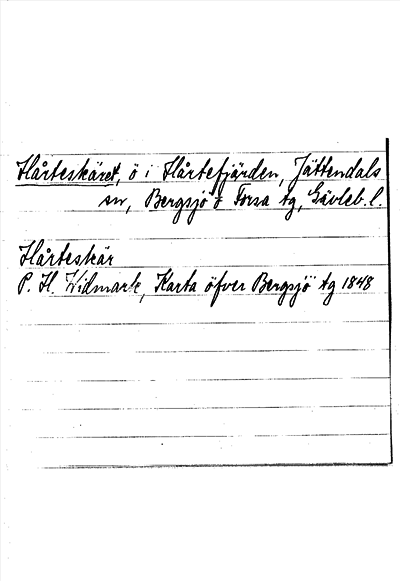 Hårteskäret, ö i Hårtefjärden, Jättendals
sn, Bergsjö o Forsa tg, Gävleb. l.
Hårteskär
P. H. Widmark, Karta öfver Bergsjö tg 1848